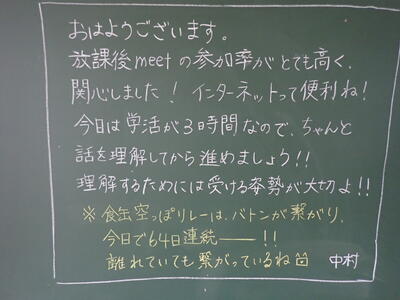 おはようございます。
放課後meetの参加率がとても高く、
関心しました！インターネットって便利ね！
今日は学活が3時間なので、ちゃんと
話を理解してから進めましょう！！
理解するためには受ける姿勢が大切よ！！
※食缶空っぽリレーは、バトンが繋がり、
今日で64日連続――！！
離れていても繋がっているね 中村